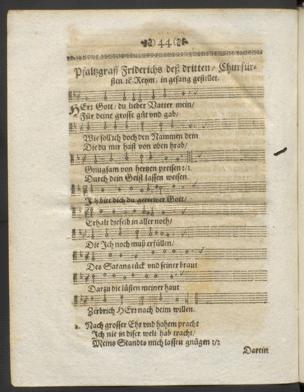 44
Pfaltzgraff Friderichs deß dritten, Churfür-
sten ꝛc. Reym, in gesang gestellet.
HErr Gott, du lieber Vatter mein,
Für deine grosse güt vnd gab,
Wie soll ich doch den Nammen dein
Die du mir hast von oben hrab,
Gnugsam von hertzen preisen
Durch dein Geist lassen weisen
Ich bitt dich du getrewer Gott,
Erhalt die seib in aller noch,
Die Ich noch muß erfüllen,
Des Satans tück vnd seiner braut
Darzu die lüsten meiner haut
Zerbrich HErr nach deim willen.
2. Nach grosser Ehr vnd hohem pracht
Ich nie in diser welt hab tracht,
Meins Stands mich lassen gnügen
Darein